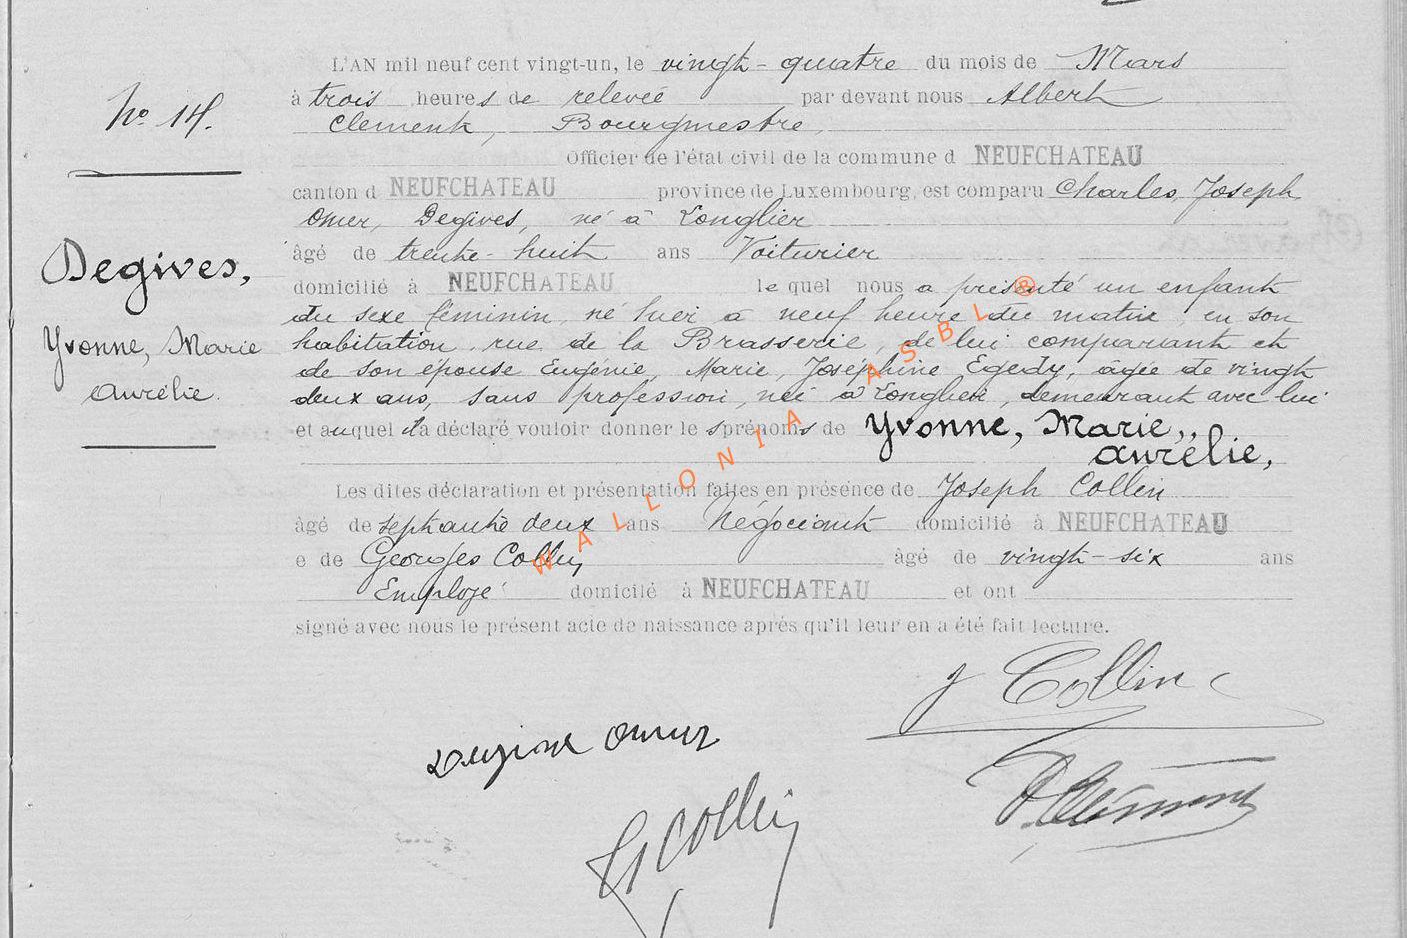 L'AN mil neuf cent vingt-un, le vingt-quatre du mois de Mars
à trois heures de relevée par devant nous Albert
Clement, Bourgmestre,
Officier de l'état civil de la commune d NEUFCHATEAU
canton d NEUFCHATEAU province de Luxembourg, est comparu Charles, Joseph
Omer, Degives, né à Longlier
âgé de trente-huit ans Voiturier
domicilié à NEUFCHATEAU lequel nous a présenté un enfant
du sexe féminin, né hier à neuf heures du matin, en son
habitation, rue de la Brasserie, de lui comparant et
de son épouse Eugénie, Marie, Joséphine Egedy, âgée de vingt
deux ans, sans profession, née à Longlier, demeurant avec lui
et auquel il a déclaré vouloir donner les prénoms de Yvonne, Marie,
Aurélie,
Les dites déclaration et présentation faites en présence de Joseph Collin
âgé de septante deux ans Négociant domicilié à NEUFCHATEAU
e de Georges Collin, âgé de vingt-six ans
Employé domicilié à NEUFCHATEAU et ont
signé avec nous le présent acte de naissance après qu'il leur en a été fait lecture.
No 14.
Degives,
Yvonne, Marie
Aurélie.
J Collin
Degives Omer
A Clément
G Collin
WALLONIA ASBL ®